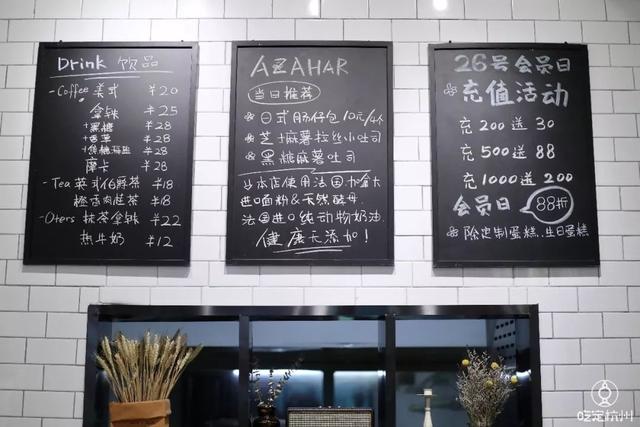 Drink 饮品
-Coffee 美式 ¥20
拿铁 ¥25
+黑糖 ¥28
+香草 ¥28
+焦糖海盐 ¥28
摩卡 ¥28
-Tea 英式伯爵茶 ¥18
橙香肉桂茶 ¥18
-Oters 抹茶拿铁 ¥22
热牛奶 ¥12
AZAHAR
当日推荐
日式肠仔包 10元/个
芝士麻薯拉丝小吐司
黑糖麻薯吐司
本店使用法国加拿大
进口面粉&天然酵母.
法国进口纯动物奶油.
健康无添加!
26号会员日
充值活动
充 200 送 30
充 500 送 88
充 1000 送 200
会员日 88折
除定制蛋糕.生日蛋糕
吃定杭州